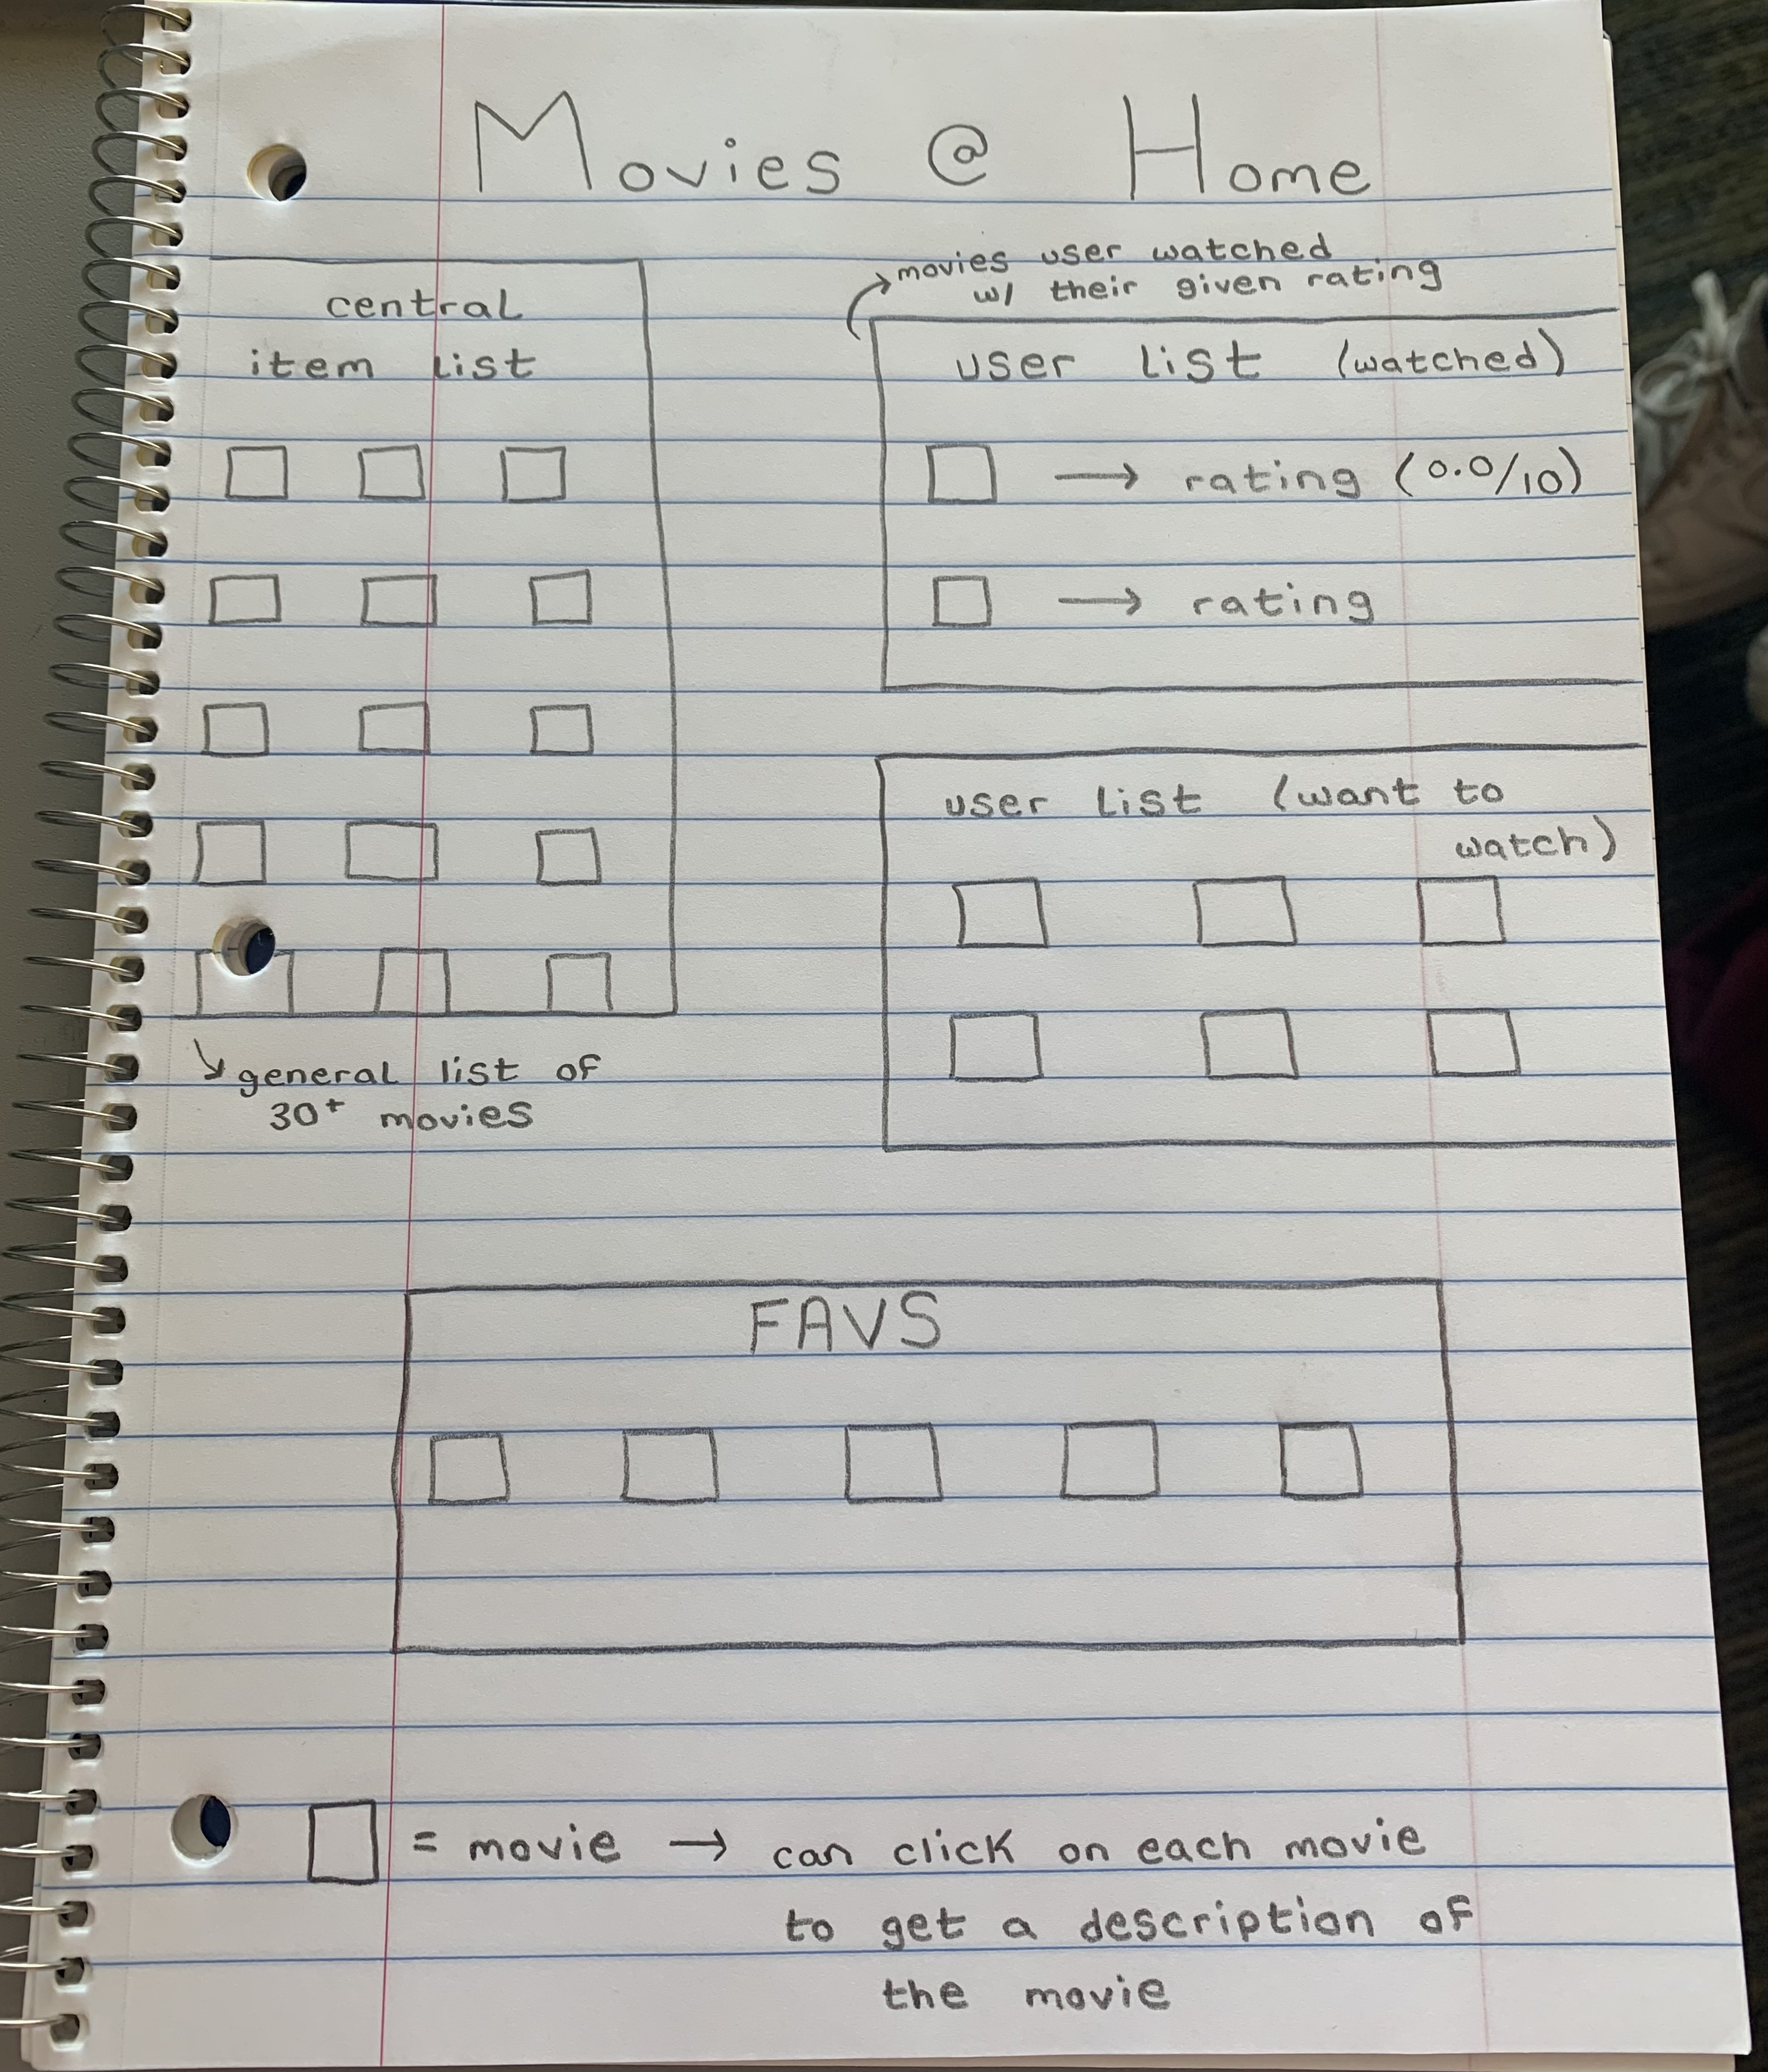 Movies @ Home
central
item list
general list of
30+ movies
movies user watched
w/ their given rating
user list (watched)
→ rating (0.0/10)
→ rating
user list (want to
watch)
FAVS
= movie → can click on each movie
to get a description of
the movie